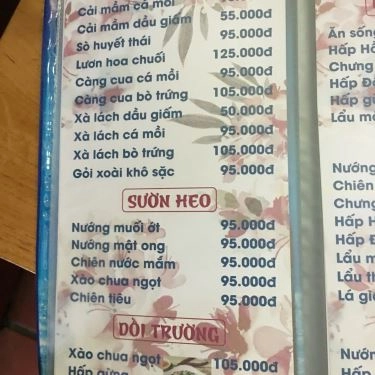 Cải mầm cá mòi
Cải mầm dầu giấm 55.000đ
Sò huyết thái 95.000đ
Lươn hoa chuối 125.000đ
Càng cua cá mồi 95.000đ
Càng cua bò trứng 105.000đ
Xà lách dầu giấm 50.000đ
Xà lách cá mồi 95.000đ
Xà lách bò trứng 105.000đ
Gỏi xoài khô sặc 95.000đ
SƯỜN HEO
Nướng muối ớt 95.000đ
Nướng mật ong 95.000đ
Chiên nước mắm 95.000đ
Xào chua ngọt 95.000đ
Chiên tiêu 95.000đ
DỒI TRƯỜNG
Xào chua ngọt 105.000đ
Hấp gừng
Ăn sống
Hấp
Chưng
Hấp
Hấp
Lẩu
Nướng
Chiên
Chưng
Hấp
Hấp
Lẩu
Lẩu
Lá
Nướng
Xào